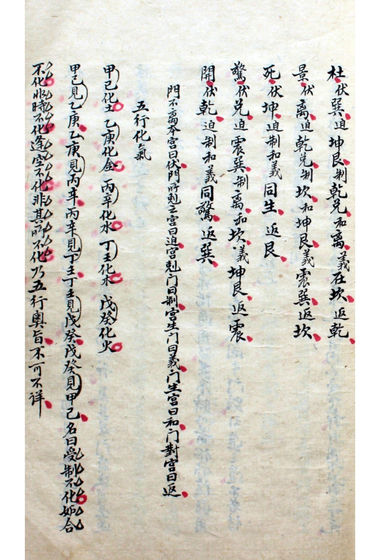 杜伏巽迫坤艮制乾兑和离義在坎返乾
景伏离迫乾兑制坎和坤艮義震巽返坎
死伏坤迫制和義同生返艮
驚伏兑迫震巽制离和坎義坤艮返震
開伏乾迫制和義同驚返巽
門不离本宫曰伏門所剋宫曰迫宫剋門曰制宫生門曰義門生宫曰和門對宫曰返
五行化氣
甲己化土乙庚化金丙辛化水丁壬化木戊癸化火
甲己見乙庚乙庚見丙辛丙辛見丁壬丁壬見戊癸戊癸見甲己名曰受制不化如合
不化非時不化逢空不化非其所不化乃五行奥旨不可不详